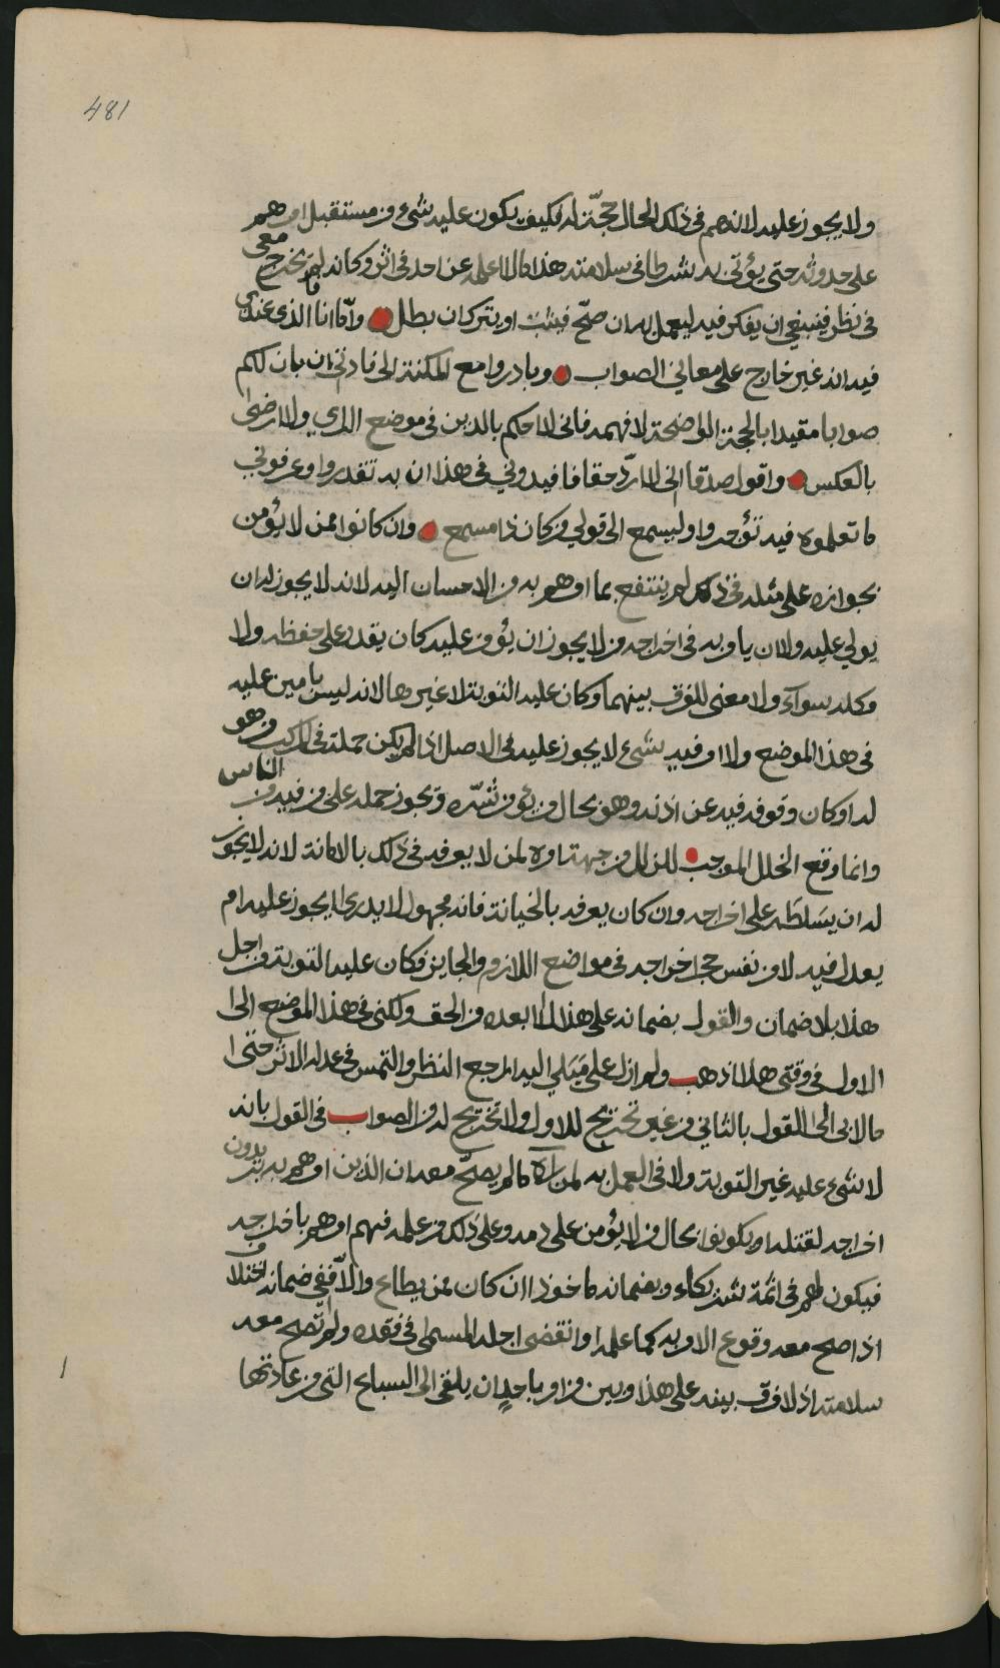 481
ولا يجوز عليه لانهم في ذلك الحال حجة له فكيف يكون عليه شيء من مستقبل امرهم
على حدوثه حتى يؤتى به شرطا في سلامته هذا ما لا اعلمه عن احد في اثر وكانه لم يخرج معي
في نظر فينبغي ان يفكر فيه ليعمل به ان صح فيثبت او يترك ان بطل واما انا الذي عندي
فيه انه غير خارج على معاني الصواب وبادروا مع المكنة الى افادتي ان بان لكم
صوابا مقيدا بالحجة الواضحة لافهمه فاني لا احكم بالدين في موضع الراي ولا ارضى
بالعكس واقول صدقا اني لا ارد حقا فافيدوني في هذا ان به تقدروا وعرفوني
ما تعلموه فيه تؤجروا وليسمع الى قولي من كان ذا مسمع وان كانوا ممن لا يؤمن
بجوازه على مثله في ذلك لم ينتفع بما امرهم به من الاحسان اليه لانه لا يجوز له ان
يولي عليه ولا ان يامر به في اخراجه من لا يجوز ان يؤمن عليه كان يقدر على حفظه ولا
وكله سواء ولا معنى للفرق بينهما وكان عليه التوبة لا غيرها لانه ليس بامين عليه
في هذا الموضع ولا امر فيه بشيء لا يجوز عليه في الاصل اذا لم يكن حمله في المركب من هو
له او كان وقوفه فيه عن اذنه وهو بحال من يؤمن شره ويجوز حمله على من فيه من الناس
وانما وقع الخلل الموجب للزلل من جهة امره لمن لا يعرفه في ذلك بالامانة لانه لا يجوز
له ان يسلطه على اخراجه وان كان يعرفه بالخيانة فانه مجهول لا يدرى ايجوز عليه ام
يعدل فيه لا من نفس اخراجه في مواضع اللازم والجايز فكان عليه التوبة من اجل
هذا بلا ضمان والقول بضمانه على هذا لا ابعده من الحق ولكني في هذا الموضع الى
الاول في وقتي هذا اذهب ولم ازل على ميلي اليه اراجع النظر والتمس في عدله الاثر حتى
مالا بي الى القول بالثاني من غير تحريج للاول ولا تخريج له من الصواب في القول بانه
لا شيء عليه غير التوبة ولا في العمل به لمن رآه ما لم يصح معه ان الذين امرهم به يريدون
اخراجه لقتله او يكونوا بحال من لا يؤمن على دمه وعلى ذلك من علمه فيهم امرهم باخراجه
فيكون لهم في اثمه شركاء وبضمانه ماخوذا ان كان ممن يطاع والا ففي ضمانه اختلاف
اذا صح معه وقوع الامر به كما علمه او انقضى اجله المسمى في فقده ولم تصح معه
سلامته اذ لا فرق بينه على هذا وبين من امر باحد ان يلقى الى السباع التي من عادتها